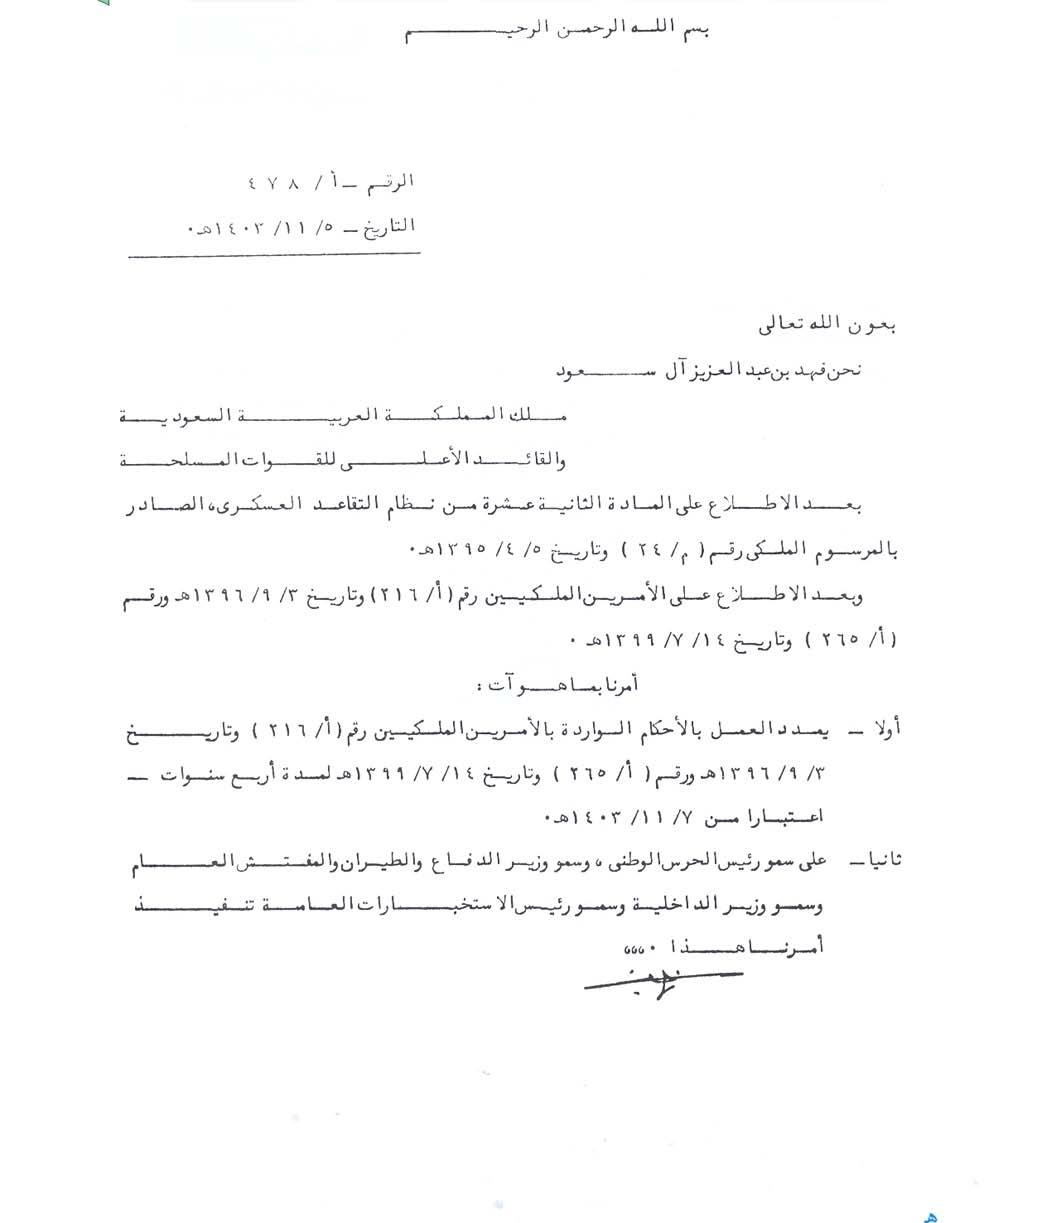 بسم الله الرحمن الرحيم
الرقم - أ / ٤٧٨
التاريخ - ٥ / ١١ / ١٤٠٣هـ٠
بعون الله تعالى
نحن فهد بن عبد العزيز آل سعود
ملك المملكة العربية السعودية
والقائد الأعلى للقوات المسلحة
بعد الاطلاع على المادة الثانية عشرة من نظام التقاعد العسكرى، الصادر
بالمرسوم الملكى رقم ( م/ ٢٤ ) وتاريخ ٥ /٤ /١٣٩٥هـ٠
وبعد الاطلاع على الأمرين الملكيين رقم (أ/ ٢١٦) وتاريخ ٣ /٩ /١٣٩٦هـ ورقم
(أ/ ٢٦٥ ) وتاريخ ١٤ /٧ /١٣٩٩هـ ٠
أمرنا بما هو آت :
أولا - يمدد العمل بالأحكام الواردة بالأمرين الملكيين رقم (أ/ ٢١٦ ) وتاريخ
٣ /٩ /١٣٩٦هـ ورقم ( أ/ ٢٦٥ ) وتاريخ ١٤ /٧ /١٣٩٩هـ لمدة أربع سنوات -
اعتبارا من ٧ /١١ /١٤٠٣هـ٠
ثانيا - على سمو رئيس الحرس الوطنى ، وسمو وزير الدفاع والطيران والمفتش العام
وسمو وزير الداخلية وسمو رئيس الاستخبارات العامة تنفيذ
أمرنا هذا ٠،،،
هـ